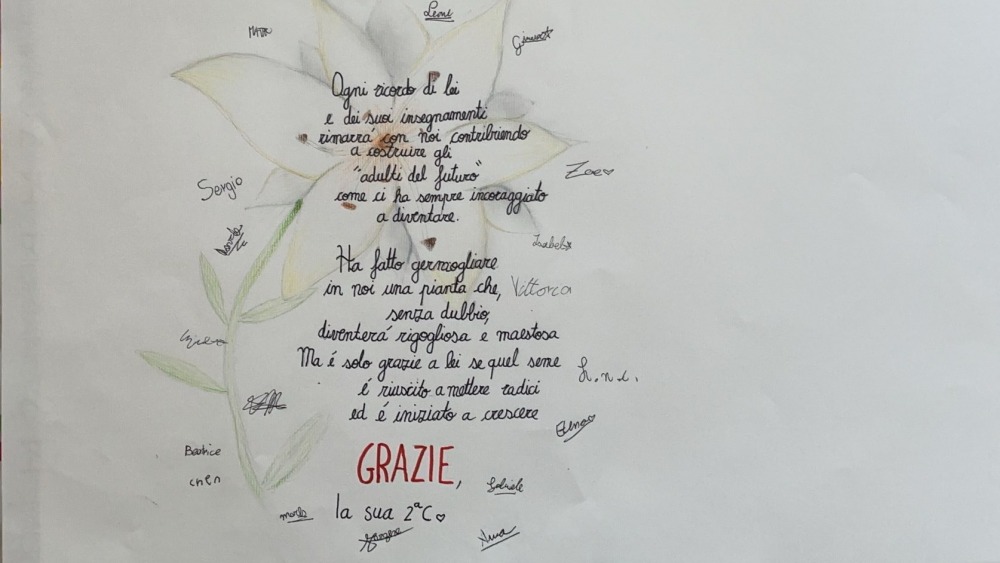 Leoni
Ginevra
Ogni ricordo di lei
e dei suoi insegnamenti
rimarrá con noi, contribuendo
a costruire gli
"adulti del futuro"
come ci ha sempre incoraggiato
a diventare.
Zoe♡
Sergio
Isabel
Ha fatto germogliare
in noi una pianta che,
Vittoria
senza dubbio,
diventerá rigogliosa e maestosa
Ma é solo grazie a lei se quel seme
é riuscito a mettere radici
ed é iniziato a crescere
L.n.c.
Elena♡
Beatrice
chen
GRAZIE,
Gabriele
la sua 2ªC♡
Anna